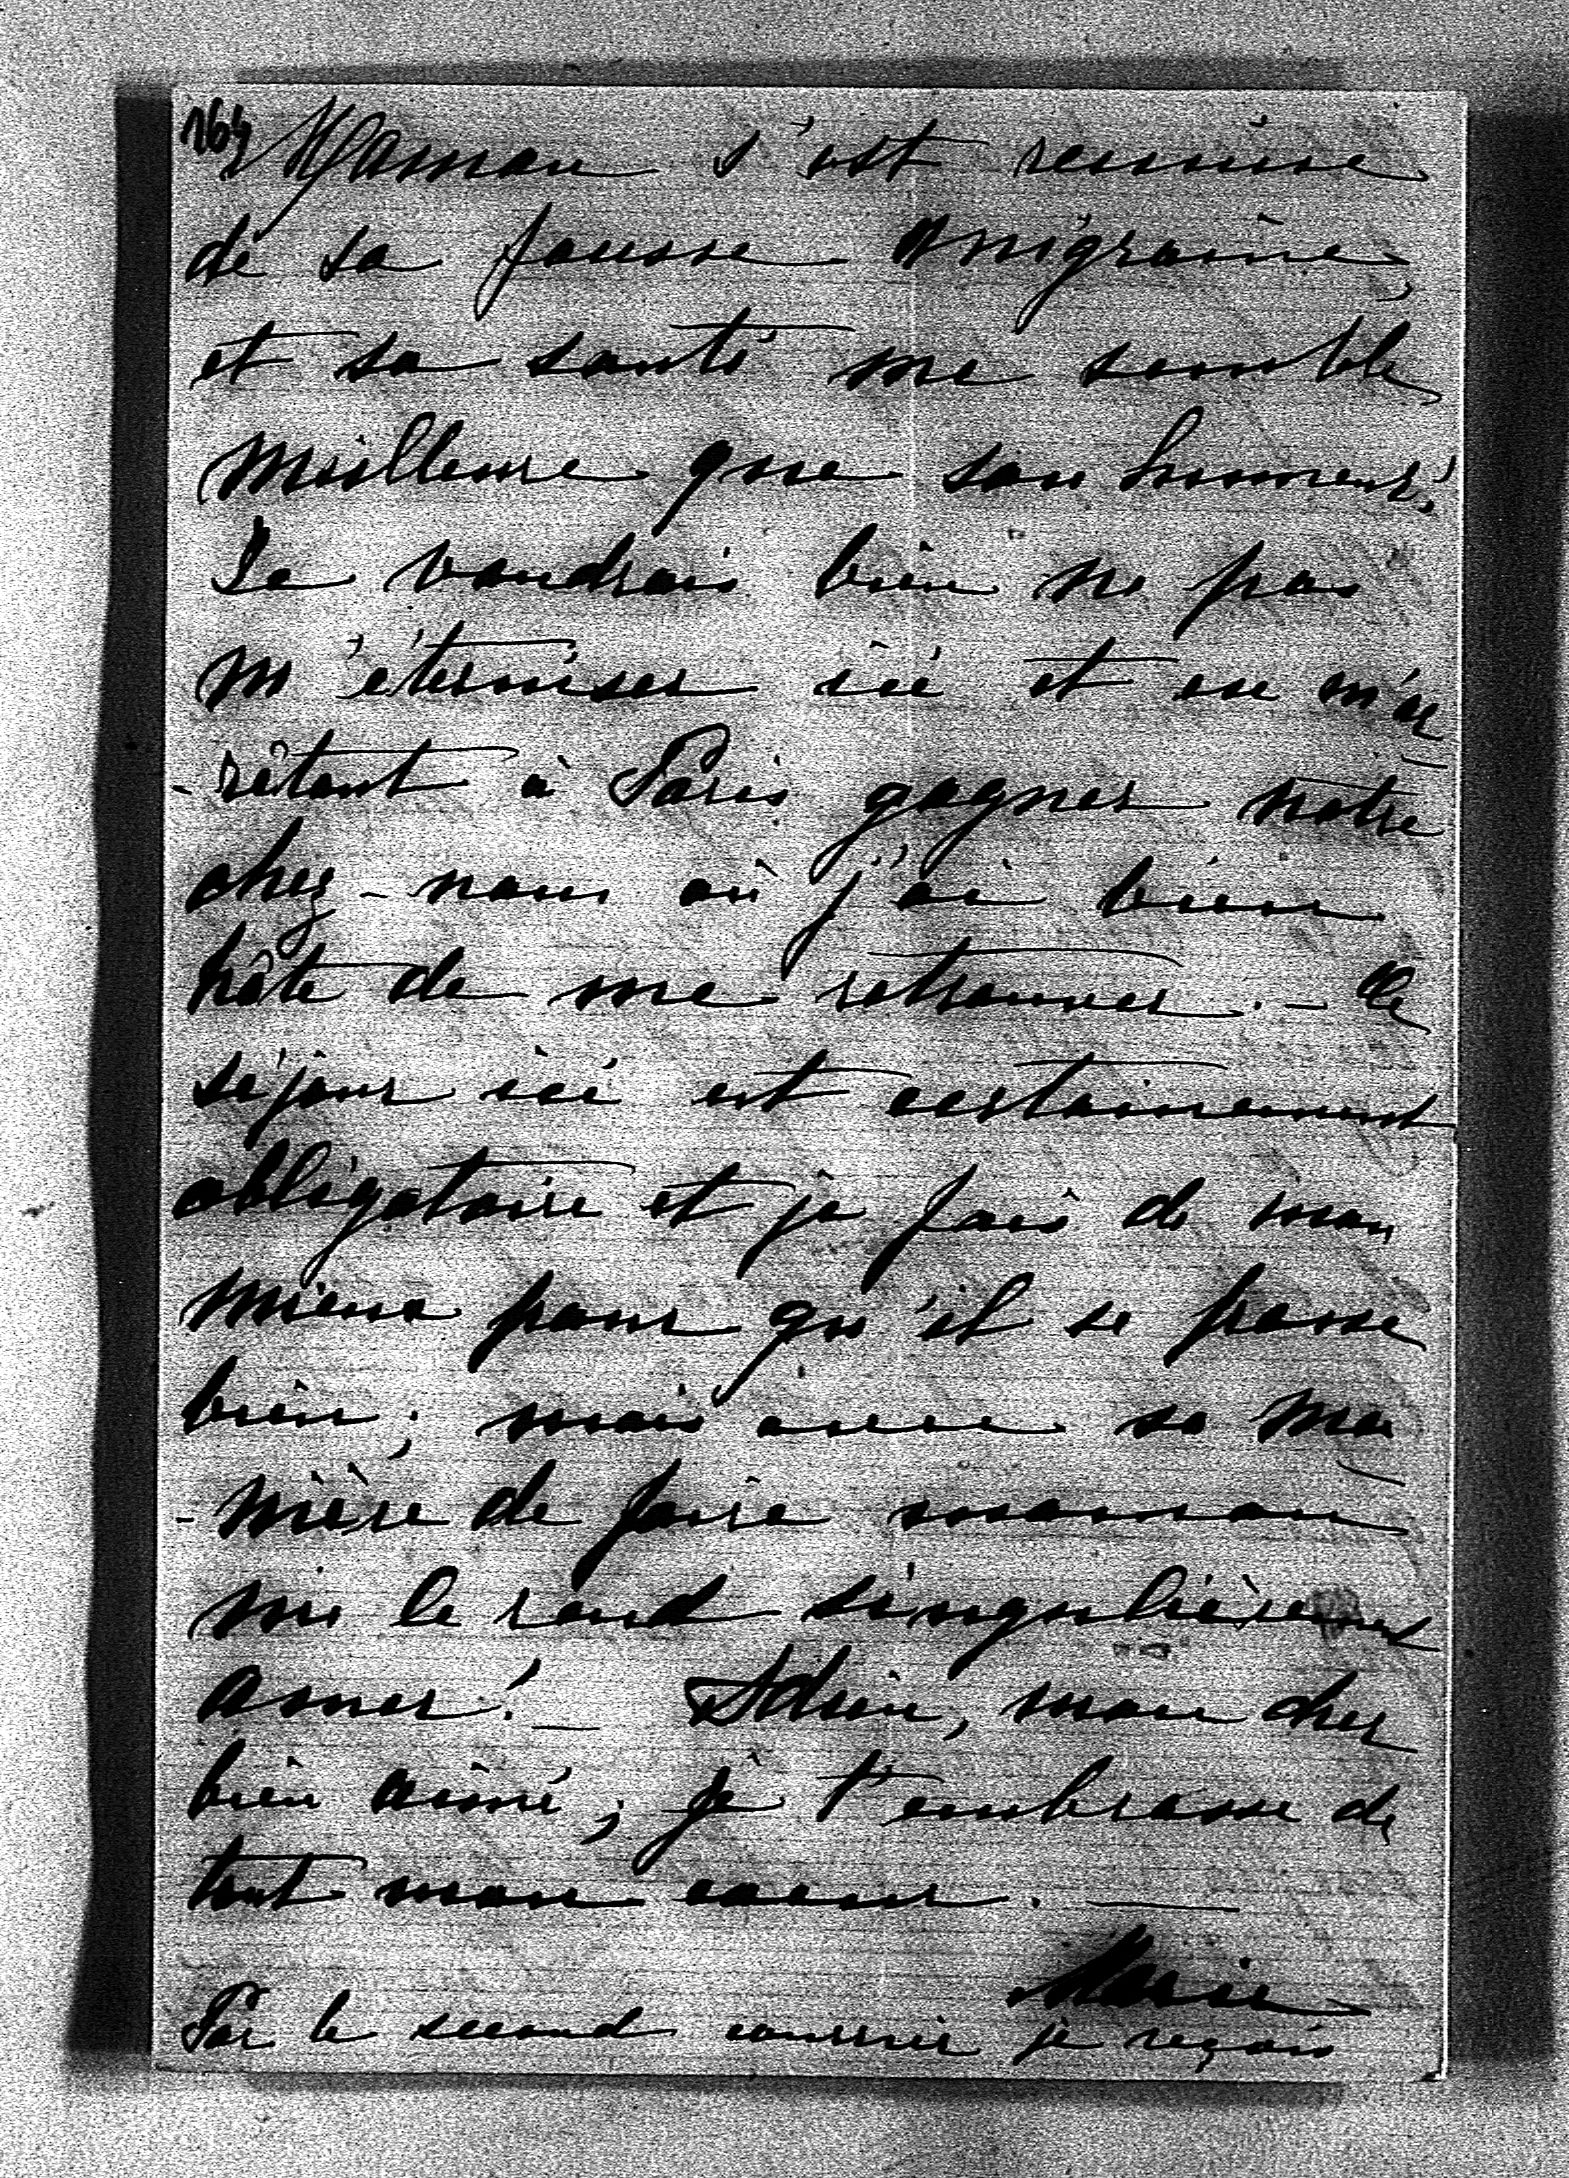 164
Maman s'est remise
de sa fausse migraine,
et sa santé me semble
meilleure que son humeur!
Je voudrais bien ne pas
m'éterniser ici et en m'ar
-rêtant à Paris gagner notre
chez-nous où j'ai bien
hâte de me retrouver. — Ce
séjour ici est certainement
obligatoire et je fais de mon
mieux pour qu'il se passe
bien; mais avec sa ma
-nière de faire maman
me le rend singulièrement
amer! — Adrien, mon cher
bien aimé, je t'embrasse de
tout mon coeur. —
Marie
Par le second courrier je reçois